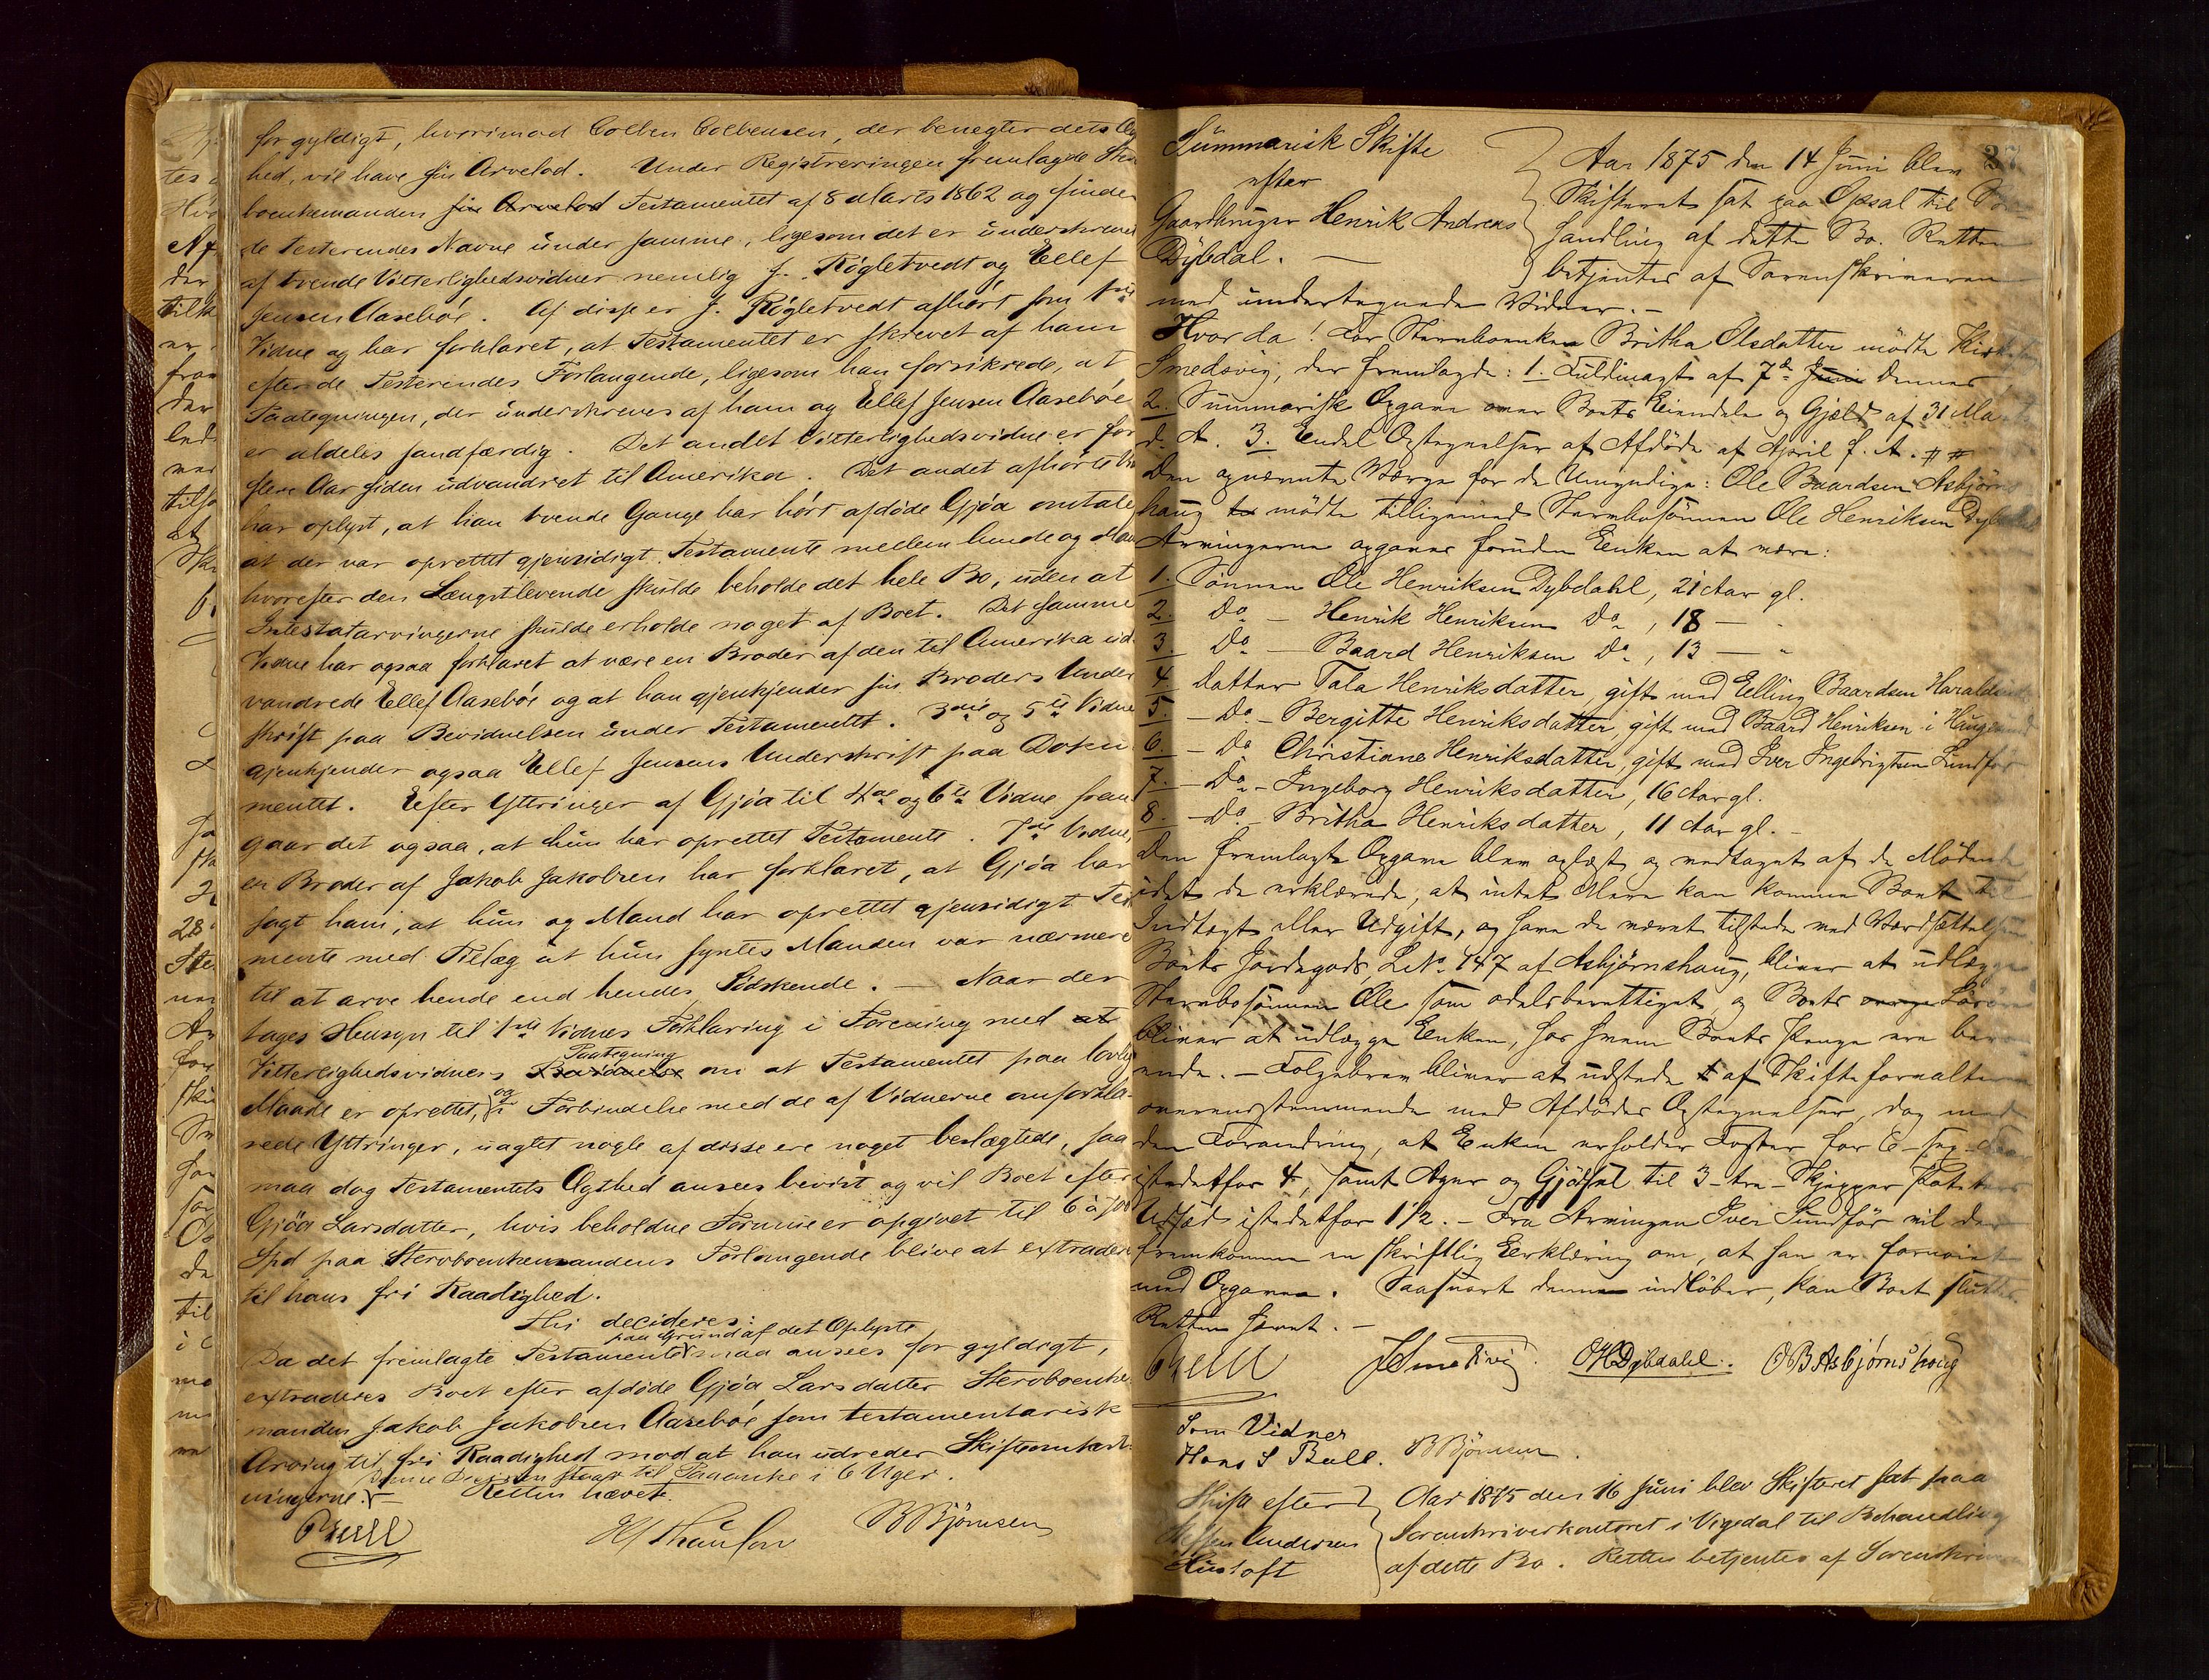 for gyldigt, hvorimod Colben Colbensen, der benegter dets Æg
hed, vil have sin Arvelod. Under Registreringen fremlagde Ster
boenkemanden sin Arvelod Testamentet af 8 Marts 1862 og finde
de Testerendes Navne under samme, ligesom det er underskrevet
af tvende Vitterlighedsvidner nemlig J. Rögletvedt og Ellef
Jensen Aaseböe. Af disse er J. Rögletvedt afhört som 1ste
Vidne og har forklaret, at Testamentet er skrevet af ham
efter de Testerendes Forlangende, ligesom han forsikrede, at
Paategningen, der underskreves af ham og Ellef Jensen Aaseböe
er aldeles sandfærdig. Det andet Vitterlighedsvidne er for
flere Aar siden udvandret til Amerika. Det andet afhörte Vi
har oplyst, at han tvende Gange har hört afdöde Gjöa omtale
at der var oprettet gjensidigt Testamente mellem hende og Man
hvorefter den Længstlevende skulde beholde det hele Bo, uden at
Intestatarvingerne skulde erholde noget af Boet. Det samme
Vidne har ogsaa forklaret at være en Broder af den til Amerika ud
vandrede Ellef Aaseböe og at han gjenkjender sin Broders Under
skrift paa Bevidnelsen under Testamentet. 3die og 5te Vidne
gjenkjender ogsaa Ellef Jensens Underskrift paa Doku
mentet. Efter Yttringer af Gjöa til 4de og 6te Vidne frem
gaar det ogsaa, at hun har oprettet Testamente. 7de Vidne,
en Broder af Jakob Jakobsen har forklaret, at Gjöa har
sagt ham, at hun og Mand har oprettet gjensidigt Tes
mente med Tillæg at hun syntes Manden var nærmere
til at arve hende end hendes Södskende. — Naar der
tages Hensyn til 1ste Vidnes Forklaring i Forening med at
Paategning
Vitterlighedsvidners Bevidnelse om at Testamentet paa lovlig
Maade er oprettet, og i Forbindelse med de af Vidnerne anforkla-
rede Yttringer, uagtet nogle af disse ere noget beslægtede, saa
maa dog Testamentets Ægthed ansees bevist og vil Boet efter
Gjöa Larsdatter, hvis beholdne Formue er opgivet til 6 à 700
Spd paa Sterboenkemandens Forlangende blive at extradere
til hans fri Raadighed.
Thi decideres:
paa Grund af det Oplyste
Da det fremlagte Testamente maa ansees for gyldigt,
extraderes Boet efter afdöde Gjöa Larsdatter Sterboenke-
manden Jakob Jakobsen Aaseböe som testamentarisk
Arving til fri Raadighed mod at han udreder Skifteomkost-
Denne Decision staar til Paaanke i 6 Uger.
ningerne. — Retten hævet.
BBjörnsen
Summarisk Skifte
efter
Gaardbruger Henrik Andreas
Dybdal. —
Aar 1875 den 14 Juni blev
Skifteret sat paa Opsal til
handling af dette Bo. Retten
betjentes af Sorenskriveren
med undertegnede Vidner. —
Hvor da! For Sterboenken Britha Olsdatter mödte
Smedsvig, der fremlagde: 1. Fuldmagt af 7de Juni dennes
2. Summarisk Opgave over Boets Eiendele og Gjæld af 31 Ma
d. A. 3. Endel Optegnelser af Afdöde af April f. A.
Den opnævnte Værge for de Umyndige: Ole Baardsen Asbjörns
haug to mödte tilligemed Sterbosönnen Ole Henriksen Dybdahl
Arvingerne opgaves foruden Enken at være:
1. Sönnen Ole Henriksen Dybdahl, 21 Aar gl.
2. Do — Henrik Henriksen Do, 18 — "
3. Do — Baard Henriksen Do, 13 — "
4. Datter Tala Henriksdatter, gift med Elling Baardsen Haralds
5. - Do - Bergitte Henriksdatter, gift med Baard Henriksen i Haugesund
6. - Do Christiane Henriksdatter, gift med Iver Ingebrigtsen Sundför
7. - Do - Ingeborg Henriksdatter, 16 Aar gl.
8. - Do - Britha Henriksdatter, 11 Aar gl. -
Den fremlagte Opgave blev oplæst og vedtaget af de Mödende
idet de erklærede, at intet Mere kan komme Boet til
Indtægt eller Udgift, og have de været tilstede ved Værdsættelsen
Boets Jordegods, L. No. 147 af Asbjörnshaug, bliver at udlægge
Sterbosönnen Ole som odelsberettiget, og Boets övrige Lösöre
bliver at udlægge Enken, hos hvem Boets Penge ere bero
ende. — Folgebrev bliver at udstede af Skifteforvalteren
overensstemmende med Afdödes Optegnelser, dog med
den Forandring, at Enken erholder Foster for 6 - sex - Faar
istedetfor 4, samt Ager og Gjödsel til 3 - tre - Skjepper Poteters
Udsæd istedetfor 1½. — Fra Arvingen Iver Sundför vil der
fremkomme en skriftlig Erklæring om, at han er fornöiet
med Opgaven. Saasnart denne indlöber, kan Boet sluttes.
Retten hævet. —
OHDybdahl. OBAsbjørnshoug
Som Vidner
Hans S Bull. BBjörnsen.
Skifte efter
Andersen
Hustoft
Aar 1875 den 16 Juni blev Skifteret sat paa
Sorenskriverkontoret i Vigedal til Behandling
af dette Bo. Retten betjentes af Sorenskriv